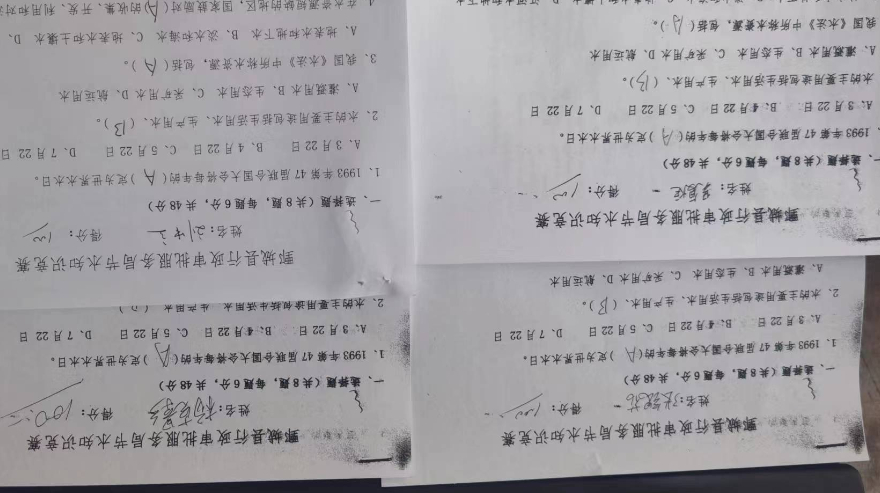 鄄城县行政审批服务局节水知识竞赛
姓名: 得分:100
一、选择题(共8题,每题6分,共48分)
1、1993年第47届联合国大会将每年的(A)定为世界水日。
A、3月22日 B、4月22日 C、5月22日 D、7月22日
2、水的主要用途包括生活用水、生产用水、(B)。
A、灌溉用水 B、生态用水 C、采矿用水 D、航运用水
鄄城县行政审批服务局节水知识竞赛
姓名: 得分:100
一、选择题(共8题,每题6分,共48分)
1、1993年第47届联合国大会将每年的(A)定为世界水日。
A、3月22日 B、4月22日 C、5月22日 D、7月22日
2、水的主要用途包括生活用水、生产用水、
鄄城县行政审批服务局节水知识竞赛
姓名: 得分:100
一、选择题(共8题,每题6分,共48分)
1993年第47届联合国大会将每年的(A)定为世界水日。
A、3月22日 B、4月22日 C、5月22日 D、7月22日
水的主要用途包括生活用水、生产用水、(B)。
A、灌溉用水 B、生态用水 C、采矿用水 D、航运用水
我国《水法》中所称水资源,包括(A)。
鄄城县行政审批服务局节水知识竞赛
姓名: 得分:100
一、选择题(共8题,每题6分,共48分)
1、1993年第47届联合国大会将每年的(A)定为世界水日。
A、3月22日 B、4月22日 C、5月22日 D、7月22日
2、水的主要用途包括生活用水、生产用水、(B)。
A、灌溉用水 B、生态用水 C、采矿用水 D、航运用水
3、我国《水法》中所称水资源,包括(A)。
A、地表水和地下水 B、淡水和海水 C、地表水和土壤水 D、
4、在水资源短缺的地区,国家鼓励对(A)的收集、开发、利用和对